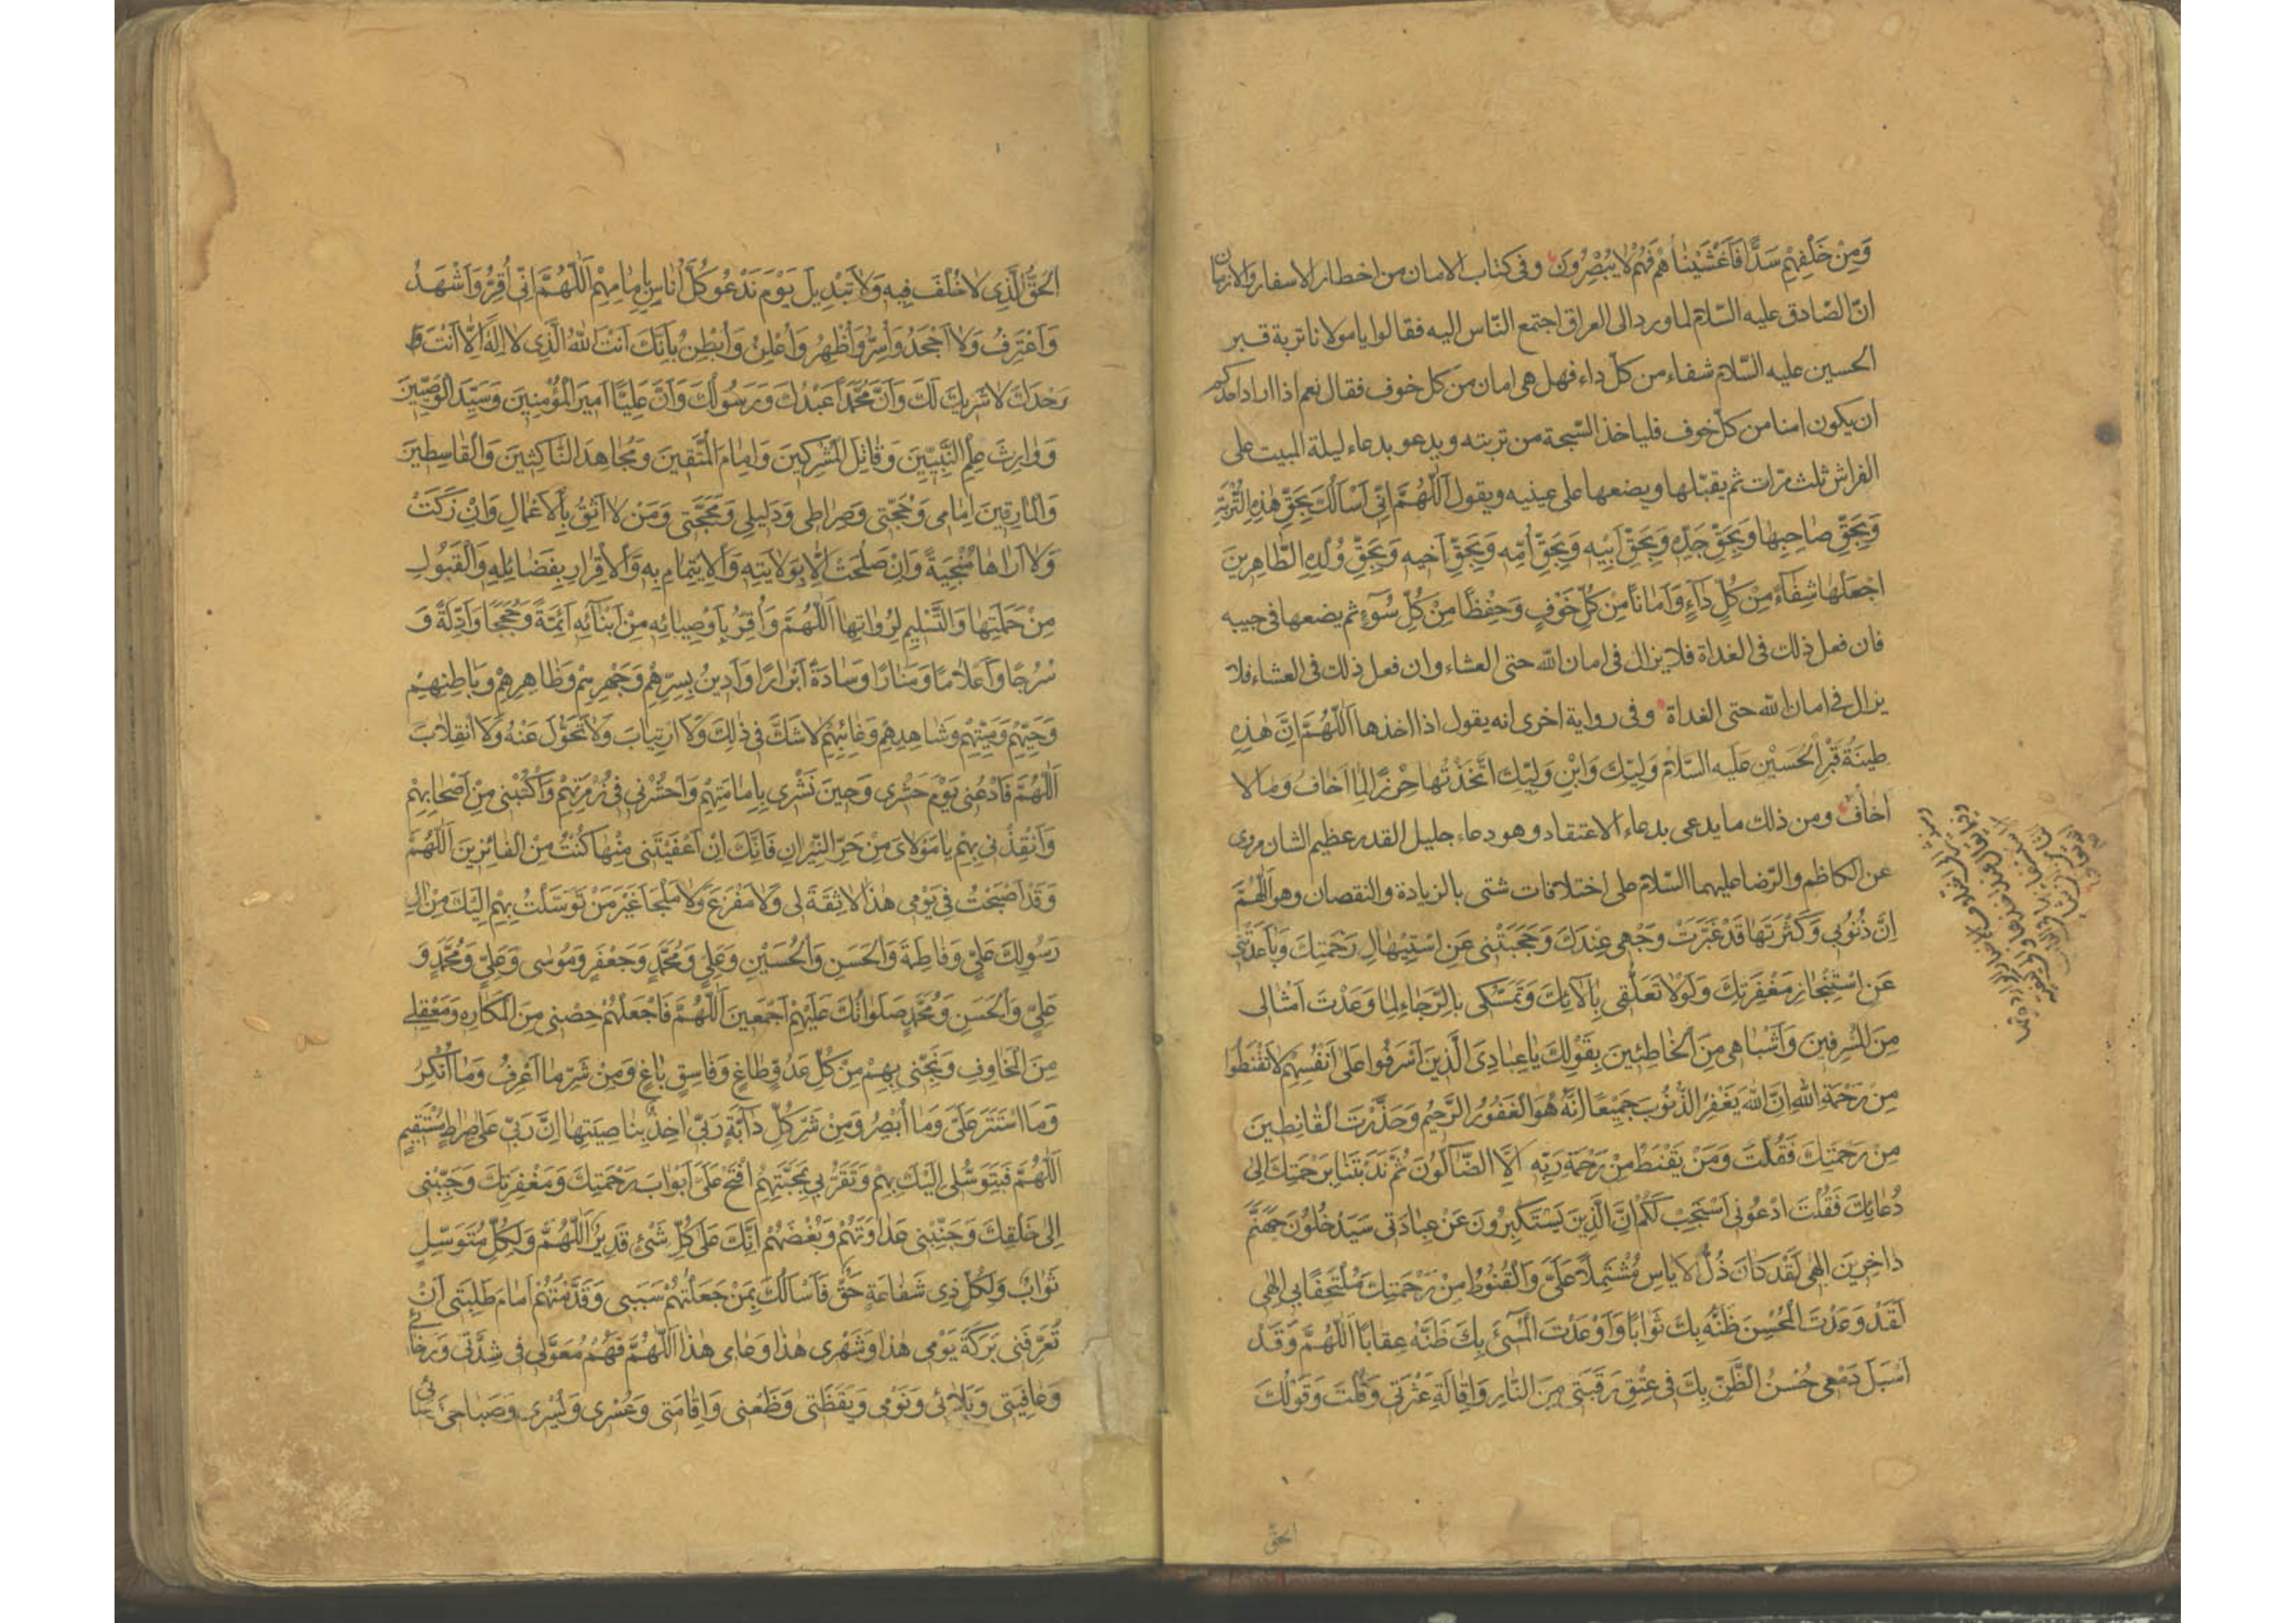 وَمِنْ خَلْفِهِمْ سَدًّا فَاَغْشَيْنٰاهُمْ فَهُمْ لٰا يُبْصِرُونَ وفى كتاب الامان من اخطار الاسفار والازمان
انّ الصّادق عليه السّلام لما ورد الى العراق اجتمع النّاس اليه فقالوا يا مولانا تربة قبر
الحسين عليه السّلام شفاء من كلّ داء فهل هى امان من كل خوف فقال نعم اذا اراد احدكم
ان يكون امنا من كلّ خوف فلياخذ السّبحة من تربته ويدعو بدعاء ليلة المبيت على
الفراش ثلث مرّات ثم يقبّلها ويضعها على عينيه ويقول اَللّٰهُمَّ اِنّى اَسْأَلُكَ بِحَقِّ هٰذِهِ التُّرْبَةِ
وَبِحَقِّ صٰاحِبِهٰا وَبِحَقِّ جَدِّهِ وَبِحَقِّ اَبِيْهِ وَبِحَقِّ اُمِّهِ وَبِحَقِّ اَخِيهِ وَبِحَقِّ وُلْدِهِ الطّٰاهِرِينَ
اجْعَلْهٰا شِفٰآءً مِنْ كُلِّ دٰاءٍ وَاَمٰانًا مِنْ كُلِّ خَوْفٍ وَحِفْظًا مِنْ كُلِّ سُوٓءٍ ثم يضعها فى جيبه
فان فعل ذلك فى الغداة فلا يزال فى امان الله حتى العشاء وان فعل ذلك فى العشاء فلا
يزال فى امان الله حتى الغداة وفى رواية اخرى انه يقول اذا اخذها اَللّٰهُمَّ اِنَّ هٰذِهِ
طينَةُ قَبْرِ الْحُسَيْنِ عَلَيهِ السَّلامُ وَلِيِّكَ وَابْنِ وَلِيِّكَ اتَّخَذْتُهٰا حِرْزًا لِمٰا اَخٰافُ وَمٰا لا
اَخٰافُ ومن ذلك ما يدعى بدعاء الاعتقاد وهو دعاء جليل القدر عظيم الشان مروى
عن الكاظم والرّضا عليهما السّلام على اختلافات شتى بالزيادة والنقصان وهو اَللّٰهُمَّ
اِنَّ ذُنُوبى وَكَثْرَتَهٰا قَدْ غَبَّرَتْ وَجْهى عِنْدَكَ وَحَجَبَتْنى عَنِ اسْتِيهٰالِ رَحْمَتِكَ وَبٰاعَدَتْنى
عَنِ اسْتِنْجٰازِ مَغْفِرَتِكَ وَلَوْلٰا تَعَلُّقى بِاٰلٰائِكَ وَتَمَسُّكى بِالرَّجٰاءِ لِمٰا وَعَدْتَ اَمْثٰالى
مِنَ الْمُسْرِفينَ وَاَشْبٰاهى مِنَ الْخٰاطِئينَ بِقَوْلِكَ يٰا عِبٰادِىَ الَّذينَ اَسْرَفُوا عَلىٰ اَنْفُسِهِمْ لٰا تَقْنَطُوا
مِنْ رَحْمَةِ اللهِ اِنَّ اللهَ يَغْفِرُ الذُّنُوبَ جَميعًا اِنَّهُ هُوَ الْغَفُورُ الرَّحيمُ وَحَذَّرْتَ الْقٰانِطينَ
مِنْ رَحْمَتِكَ فَقُلْتَ وَمَنْ يَقْنَطُ مِنْ رَحْمَةِ رَبِّهِ اِلَّا الضّٰالُّونَ ثُمَّ نَدَبْتَنٰا بِرَحْمَتِكَ اِلىٰ
دُعٰائِكَ فَقُلْتَ ادْعُونى اَسْتَجِبْ لَكُمْ اِنَّ الَّذينَ يَسْتَكْبِرُونَ عَنْ عِبٰادَتى سَيَدْخُلُونَ جَهَنَّمَ
دٰاخِرينَ اِلٰهى لَقَدْ كٰانَ ذُلُّ الْاَيٰاسِ مُشْتَمِلًا عَلَىَّ وَالْقُنُوطُ مِنْ رَحْمَتِكَ مُلْتَحِفًا بى اِلٰهى
لَقَدْ وَعَدْتَ الْمُحْسِنَ ظَنَّهُ بِكَ ثَوٰابًا وَاَوْعَدْتَ الْمُسىءَ بِكَ ظَنَّهُ عِقٰابًا اَللّٰهُمَّ وَقَدْ
اَسْبَلَ دَمْعى حُسْنُ الظَّنِّ بِكَ فى عِتْقِ رَقَبَتى مِنَ النّٰارِ وَاِقٰالَةِ عَثْرَتى وَقُلْتَ وَقَوْلُكَ
الحقّ
اَلْحَقُّ الَّذى لٰا خُلْفَ فيهِ وَلٰا تَبْديلَ يَوْمَ نَدْعُو كُلَّ اُنٰاسٍ بِاِمٰامِهِمْ اَللّٰهُمَّ اِنّى اُقِرُّ وَاَشْهَدُ
وَاَعْتَرِفُ وَلٰا اَجْحَدُ وَاُسِرُّ وَاُظْهِرُ وَاُعْلِنُ وَاُبْطِنُ بِاَنَّكَ اَنْتَ اللهُ الَّذى لٰا اِلٰهَ اِلّٰا اَنْتَ
وَحْدَكَ لٰا شَرِيكَ لَكَ وَاَنَّ مُحَمَّدًا عَبْدُكَ وَرَسُولُكَ وَاَنَّ عَلِيًّا اَميرَ الْمُؤْمِنِينَ وَسَيِّدَ الْوَصِيّينَ
وَوٰارِثَ عِلْمِ النَّبِيّينَ وَقٰاتِلَ الْمُشْرِكينَ وَاِمٰامَ الْمُتَّقينَ وَمُجٰاهِدَ النّٰاكِثينَ وَالْقٰاسِطينَ
وَالْمٰارِقينَ اِمٰامى وَحُجَّتى وَصِرٰاطى وَدَليلى وَمَحَجَّتى وَمَنْ لٰا اَثِقُ بِالْاَعْمٰالِ وَاِنْ زَكَتْ
وَلٰا اَرٰاهٰا مُنْجِيَةً وَاِنْ صَلُحَتْ اِلّٰا بِوِلٰايَتِهِ وَالْاِيتِمٰامِ بِهِ وَالْاِقْرٰارِ بِفَضٰائِلِهِ وَالْقَبُولِ
مِنْ حَمَلَتِهٰا وَالتَّسْليمِ لِرُوٰاتِهٰا اَللّٰهُمَّ وَاُقِرُّ بِاَوْصِيٰائِهِ مِنْ اَبْنٰائِهِ اَئِمَّةً وَحُجَجًا وَاَدِلَّةً وَ
سُرُجًا وَاَعْلٰامًا وَمَنٰارًا وَسٰادَةً اَبْرٰارًا وَاَدينُ بِسِرِّهِمْ وَجَهْرِهِمْ وَظٰاهِرِهِمْ وَبٰاطِنِهِمْ
وَحَيِّهِمْ وَمَيِّتِهِمْ وَشٰاهِدِهِمْ وَغٰائِبِهِمْ لٰا شَكَّ فى ذٰلِكَ وَلٰا ارْتِيٰابَ وَلٰا تَحَوُّلَ عَنْهُ وَلٰا انْقِلٰابَ
اَللّٰهُمَّ فَادْعُنى يَوْمَ حَشْرى وَحينَ نَشْرى بِاِمٰامَتِهِمْ وَاحْشُرْنى فى زُمْرَتِهِمْ وَاكْتُبْنى مِنْ اَصْحٰابِهِمْ
وَاَنْقِذْنى بِهِمْ يٰا مَوْلٰاىَ مِنْ حَرِّ النّيرٰانِ فَاِنَّكَ اِنْ اَعْفَيْتَنى مِنْهٰا كُنْتُ مِنَ الْفٰائِزينَ اَللّٰهُمَّ
وَقَدْ اَصْبَحْتُ فى يَوْمى هٰذٰا لٰا ثِقَةَ لى وَلٰا مَفْزَعَ وَلٰا مَلْجَأَ غَيْرَ مَنْ تَوَسَّلْتُ بِهِمْ اِلَيْكَ مِنْ اٰلِ
رَسُولِكَ عَلِىٍّ وَفٰاطِمَةَ وَالْحَسَنِ وَالْحُسَيْنِ وَعَلِىٍّ وَمُحَمَّدٍ وَجَعْفَرٍ وَمُوسٰى وَعَلِىٍّ وَمُحَمَّدٍ وَ
عَلِىٍّ وَالْحَسَنِ وَمُحَمَّدٍ صَلَوٰاتُكَ عَلَيْهِمْ اَجْمَعينَ اَللّٰهُمَّ فَاجْعَلْهُمْ حِصْنى مِنَ الْمَكٰارِهِ وَمَعْقِلى
مِنَ الْمَخٰاوِفِ وَنَجِّنى بِهِمْ مِنْ كُلِّ عَدُوٍّ طٰاغٍ وَفٰاسِقٍ بٰاغٍ وَمِنْ شَرِّ مٰا اَعْرِفُ وَمٰا اُنْكِرُ
وَمَا اسْتَتَرَ عَلَىَّ وَمٰا اُبْصِرُ وَمِنْ شَرِّ كُلِّ دٰابَّةٍ رَبّى اٰخِذٌ بِنٰاصِيَتِهٰا اِنَّ رَبّى عَلىٰ صِرٰاطٍ مُسْتَقيمٍ
اَللّٰهُمَّ فَبِتَوَسُّلى اِلَيْكَ بِهِمْ وَتَقَرُّبى بِمَحَبَّتِهِمُ افْتَحْ عَلَىَّ اَبْوٰابَ رَحْمَتِكَ وَمَغْفِرَتِكَ وَحَبِّبْنى
اِلىٰ خَلْقِكَ وَجَنِّبْنى عَدٰاوَتَهُمْ وَبُغْضَهُمْ اِنَّكَ عَلىٰ كُلِّ شَىْءٍ قَديرٌ اَللّٰهُمَّ وَلِكُلِّ مُتَوَسِّلٍ
ثَوٰابٌ وَلِكُلِّ ذى شَفٰاعَةٍ حَقٌّ فَاَسْأَلُكَ بِمَنْ جَعَلْتُهُمْ سَبَبى وَقَدَّمْتُهُمْ اَمٰامَ طَلِبَتى اَنْ
تُعَرِّفَنى بَرَكَةَ يَوْمى هٰذٰا وَشَهْرى هٰذٰا وَعٰامى هٰذٰا اَللّٰهُمَّ فَهُمْ مُعَوَّلى فى شِدَّتى وَرَخٰائى
وَعٰافِيَتى وَبَلٰائى وَنَوْمى وَيَقَظَتى وَظَعْنى وَاِقٰامَتى وَعُسْرى وَيُسْرى وَصَبٰاحى